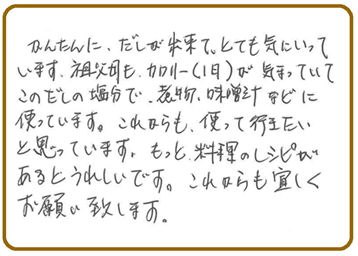 かんたんに、だしが出来て、とても気にいって
います。祖父母も、カロリー(1日)が気まっていて
このだしの塩分で、煮物、味噌汁などに
使っています。これからも、使って行きたい
と思っています。もっと、料理のレシピが
あるとうれしいです。これからも宜しく
お願い致します。